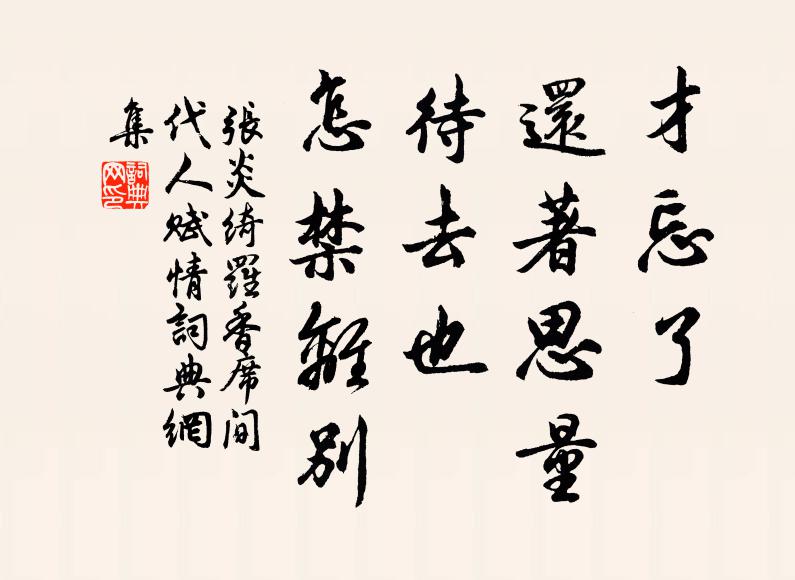 才忘了
還著思量
待去也
怎禁離別
張炎綺羅香席间
代人赋情詞典網
集
詞典
网印